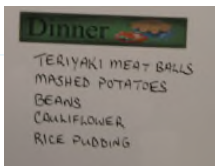 Dinner
TERIYAKI MEAT BALLS
MASHED POTATOES
BEANS
CAULIFLOWER
RICE PUDDING